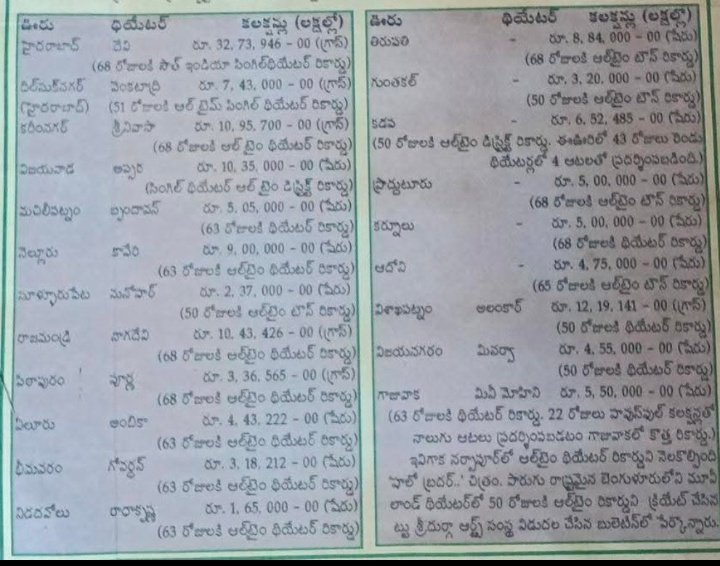 ఊరు థియేటర్ కలక్షన్లు (లక్షల్లో)
హైదరాబాద్ దేవి రూ. 32, 73, 946 - 00 (గ్రాస్)
(68 రోజులకి సౌత్ ఇండియా సింగిల్‌థియేటర్ రికార్డు)
దిల్‌సుక్‌నగర్ వెంకటాద్రి రూ. 7, 43, 000 - 00 (గ్రాస్)
(హైదరాబాద్) (51 రోజులకి ఆల్ టైమ్ సింగిల్ థియేటర్ రికార్డు)
కరీంనగర్ శ్రీనివాసా రూ. 10, 95, 700 - 00 (గ్రాస్)
(68 రోజులకి ఆల్ టైం థియేటర్ రికార్డు)
విజయవాడ అప్సర రూ. 10, 35, 000 - 00 (షేరు)
(సింగిల్ థియేటర్ ఆల్ టైం డిస్ట్రిక్ట్ రికార్డు)
మచిలీపట్నం బృందావన్ రూ. 5. 05, 000 - 00 (షేరు)
(63 రోజులకి ఆల్‌టైం థియేటర్ రికార్డు)
నెల్లూరు కావేరి రూ. 9, 00, 000 - 00 (షేరు)
(63 రోజులకి ఆల్‌టైం థియేటర్ రికార్డు)
సూళ్ళూరుపేట మనోహర్ రూ. 2, 37, 000 - 00 (షేరు)
(50 రోజులకి ఆల్‌టైం టౌన్ రికార్డు)
రాజమండ్రి నాగదేవి రూ. 10, 43, 426 - 00 (గ్రాస్)
(68 రోజులకి ఆల్‌టైం థియేటర్ రికార్డు)
పిఠాపురం పూర్ణ రూ. 3, 36, 565 - 00 (గ్రాస్)
(68 రోజులకి ఆల్‌టైం థియేటర్ రికార్డు)
ఏలూరు అంబికా రూ. 4, 43, 222 - 00 (షేరు)
(63 రోజులకి ఆల్‌టైం థియేటర్ రికార్డు)
భీమవరం గోవర్ధన్ రూ. 3, 18, 212 - 00 (షేరు)
(63 రోజులకి ఆల్‌టైం థియేటర్ రికార్డు)
నిడదవోలు రాధాకృష్ణ రూ. 1, 65, 000 - 00 (షేరు)
(63 రోజులకి ఆల్‌టైం థియేటర్ రికార్డు)
ఊరు థియేటర్ కలక్షన్లు (లక్షల్లో)
తిరుపతి - రూ. 8, 84, 000 - 00 (షేరు)
(68 రోజులకి ఆల్‌టైం టౌన్ రికార్డు)
గుంతకల్ - రూ. 3, 20, 000 - 00 (షేరు)
(50 రోజులకి ఆల్‌టైం టౌన్ రికార్డు)
కడప - రూ. 6, 52, 485 - 00 (షేరు)
(50 రోజులకి ఆల్‌టైం డిస్ట్రిక్ట్ రికార్డు. ఈఊరిలో 43 రోజులు రెండు
థియేటర్లలో 4 ఆటలతో ప్రదర్శింపబడింది.)
ప్రొద్దుటూరు - రూ. 5, 00, 000 - 00 (షేరు)
(68 రోజులకి ఆల్‌టైం టౌన్ రికార్డు)
కర్నూలు - రూ. 5, 00, 000 - 00 (షేరు)
(68 రోజులకి ఆల్‌టైం థియేటర్ రికార్డు)
ఆదోని - రూ. 4, 75, 000 - 00 (షేరు)
(65 రోజులకి ఆల్‌టైం టౌన్ రికార్డు)
విశాఖపట్నం అలంకార్ రూ. 12, 19, 141 - 00 (గ్రాస్)
(50 రోజులకి థియేటర్ రికార్డు)
విజయనగరం మినర్వా రూ. 4, 55, 000 - 00 (షేరు)
(50 రోజులకి థియేటర్ రికార్డు)
గాజువాక మినీ మోహిని రూ. 5, 50, 000 - 00 (షేరు)
(63 రోజులకి థియేటర్ రికార్డు. 22 రోజులు హవుస్‌ఫుల్ కలక్షన్లతో
నాలుగు ఆటలు ప్రదర్శింపబడటం గాజువాకలో కొత్త రికార్డు.)
ఇవిగాక నర్సాపూర్‌లో ఆల్‌టైం థియేటర్ రికార్డుని నెలకొల్పింది
'హలో బ్రదర్..' చిత్రం. పొరుగు రాష్ట్రమైన బెంగుళూరులోని మూవీ
లాండ్ థియేటర్‌లో 50 రోజులకి ఆల్‌టైం రికార్డుని క్రియేట్ చేసిన
ట్టు శ్రీ దుర్గా ఆర్ట్స్ సంస్థ విడుదల చేసిన బులెటిన్‌లో పేర్కొన్నారు.